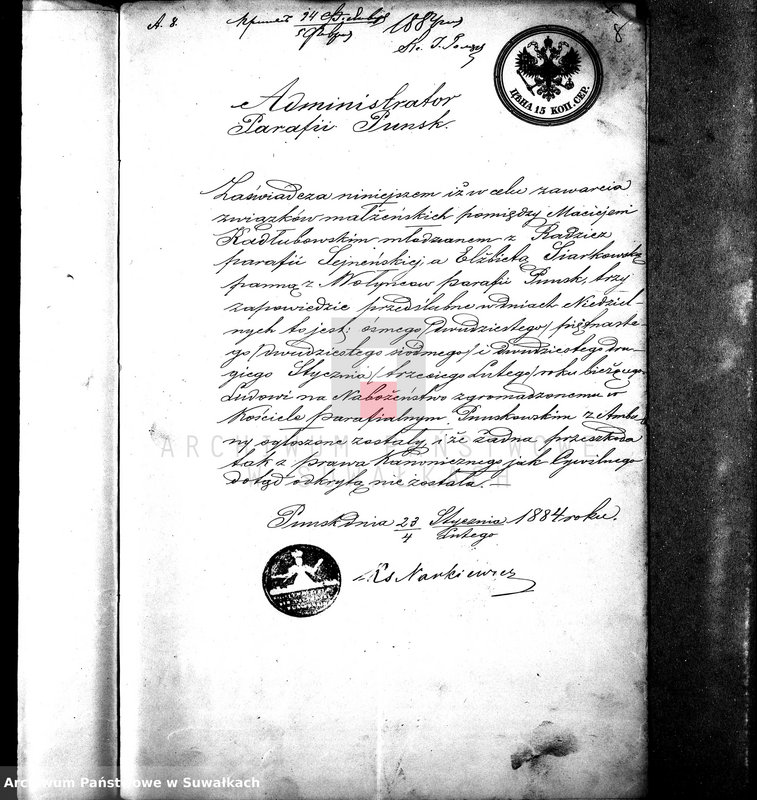 A. 8.
1884
8
ЦѢНА 15 КОП. СЕР.
Administrator
Parafii Punsk.
Zaświadcza niniejszem iż w celu zawarcia
związków małżeńskich pomiędzy Maciejem
Kadłubowskim młodzianem z Radziez
parafii Sejneńskiej, a Elżbietą Siarkowską
panną z Wołyńcow parafii Punsk, trzy
zapowiedzie przedślubne w dniach Niedziel-
nych to jest: ósmego /dwudziestego/ piętnaste-
go /dwudziestego siódmego/ i dwudziestego dru-
giego Stycznia /trzeciego Lutego/ roku bieżącego
Ludowi na Nabożeństwo zgromadzonemu w
Kościele parafialnym Punskowskim z Ambo-
ny ogłoszone zostały, i że żadna przeszkoda
tak z prawa Kanonicznego jak Cywilnego
dotąd odkrytą nie została.
Punsk dnia 23/4 Stycznia/Lutego 1884 roku.
Ks Narkiewicz
ARCHIWUM PAŃSTWOWE
W SUWAŁKACH
Archiwum Państwowe w Suwałkach